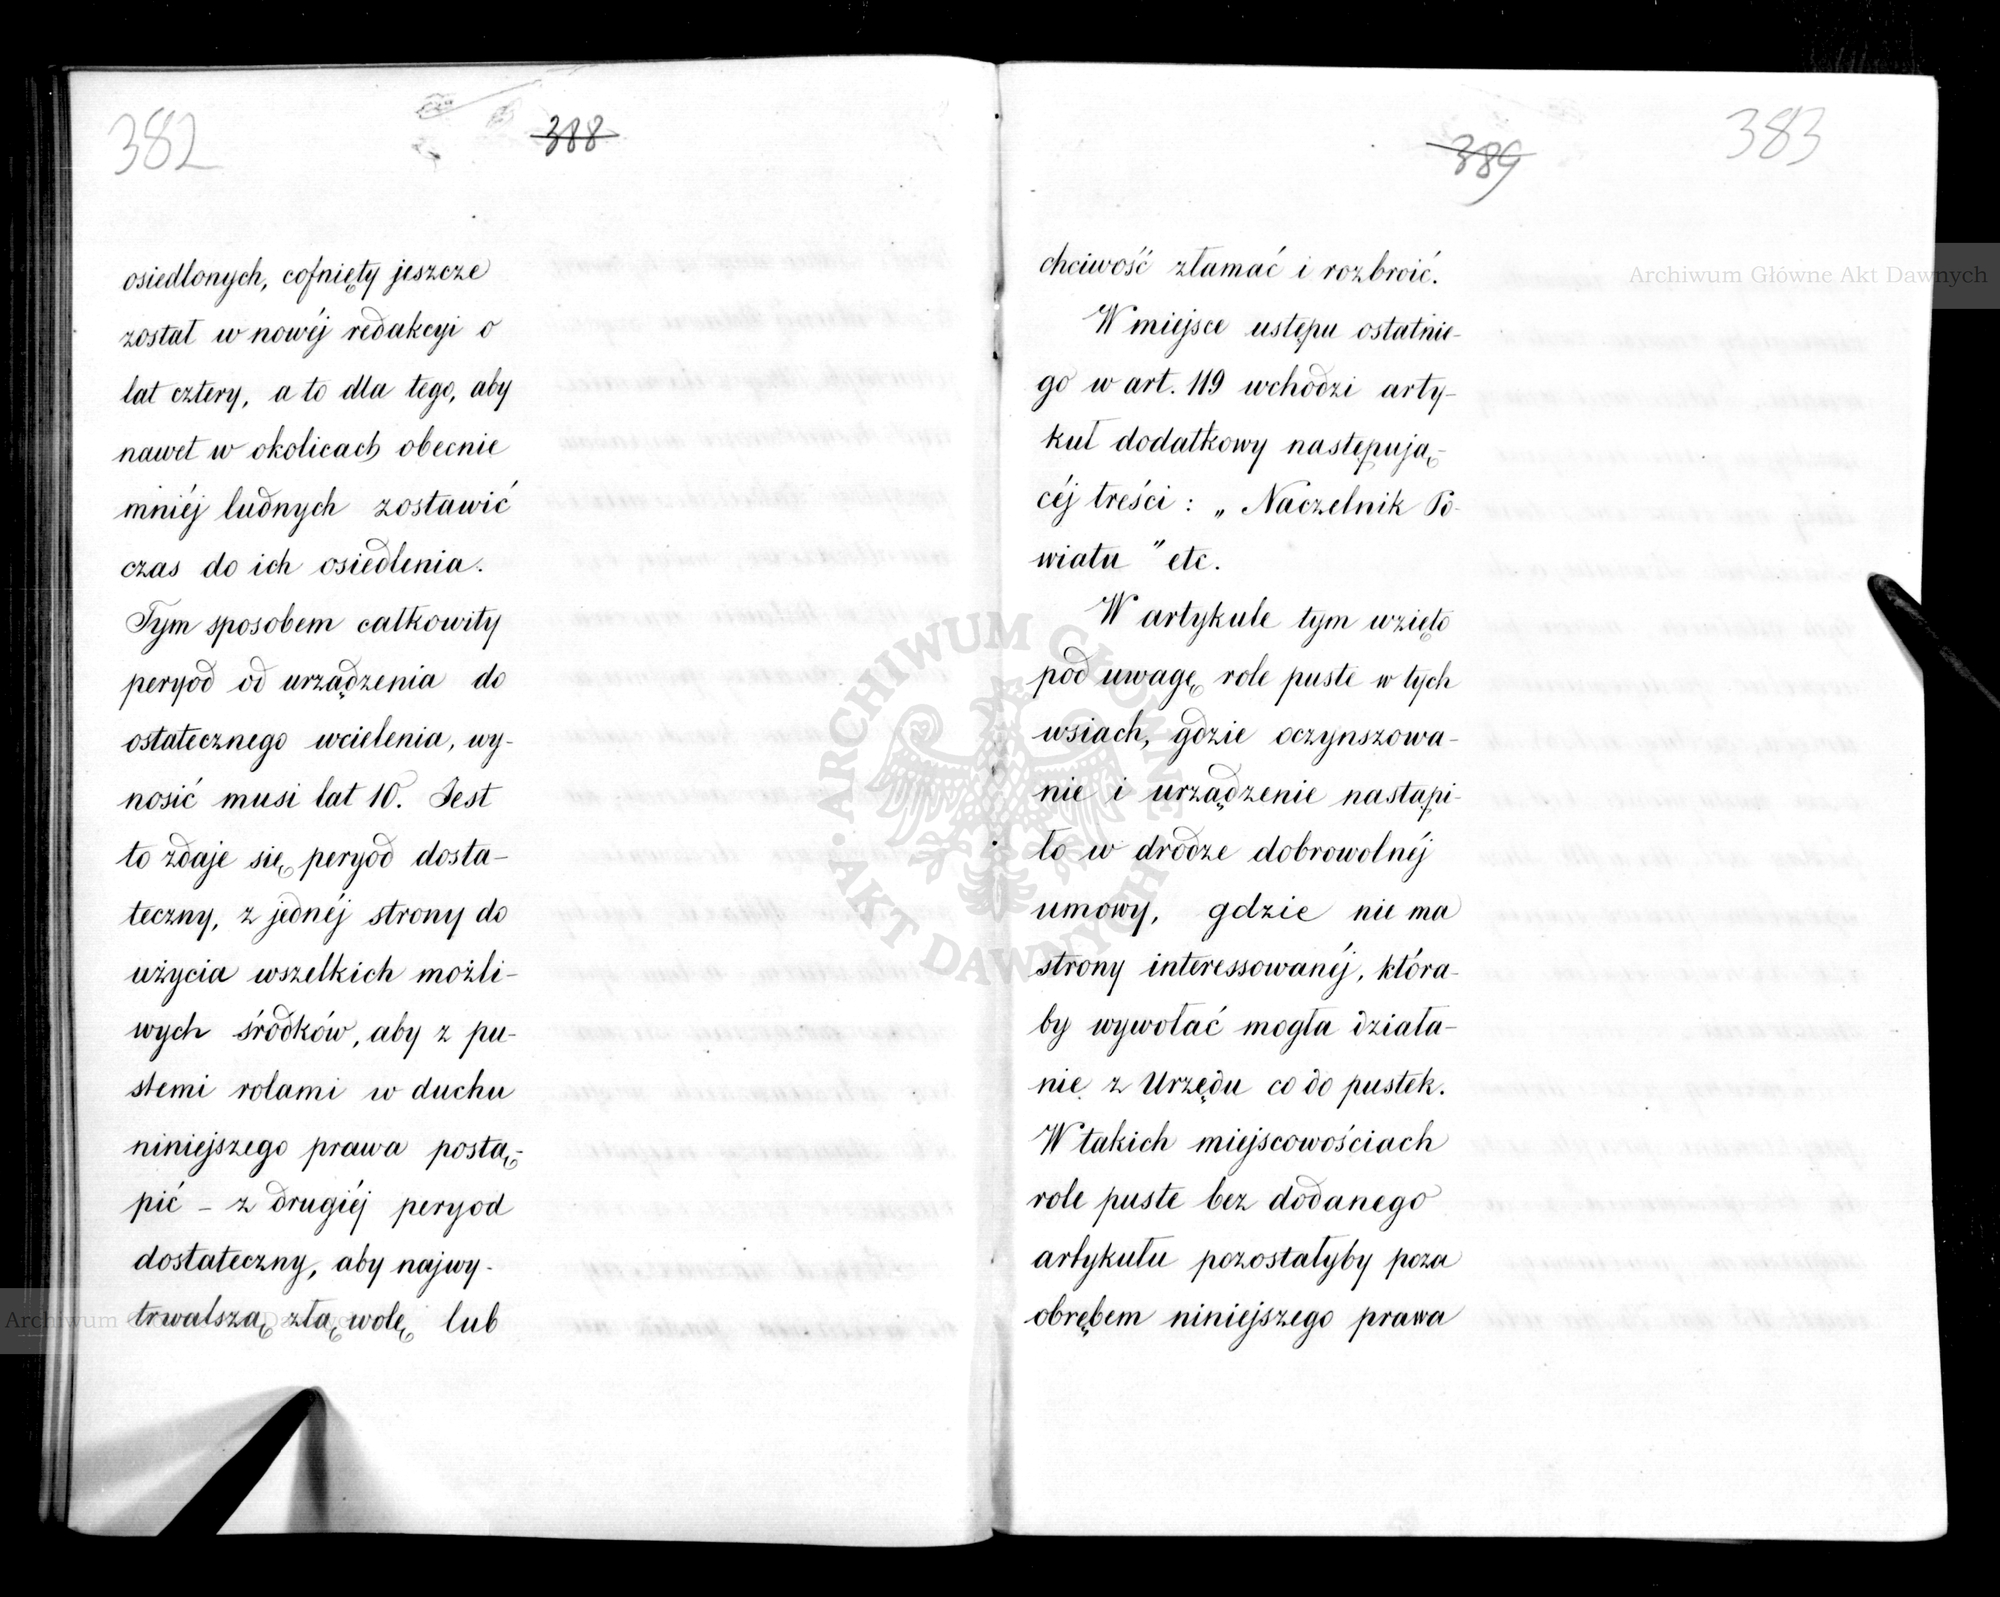 382
388
osiedlonych, cofnięty jeszcze
został w nowéj redakcyi o
lat cztery, a to dla tego, aby
nawet w okolicach obecnie
mniéj ludnych zostawić
czas do ich osiedlenia.
Tym sposobem całkowity
peryod od urządzenia do
ostatecznego wcielenia, wy-
nosić musi lat 10. Jest
to zdaje się peryod dosta-
teczny, z jednéj strony do
użycia wszelkich możli-
wych środków, aby z pu-
stemi rolami w duchu
niniejszego prawa postą-
pić – z drugiéj peryod
dostateczny, aby najwy-
trwalszą złą wolę lub
389
383
chciwość złamać i rozbroić.
W miejsce ustępu ostatnie-
go w art. 119 wchodzi arty-
kuł dodatkowy następują-
céj treści: „Naczelnik Po-
wiatu" etc.
W artykule tym wzięto
pod uwagę role puste w tych
wsiach, gdzie oczynszowa-
nie i urządzenie nastąpi-
ło w drodze dobrowolnéj
umowy, gdzie nie ma
strony interessowanéj, która-
by wywołać mogła działa-
nie z Urzędu co do pustek.
W takich miejscowościach
role puste bez dodanego
artykułu pozostałyby poza
obrębem niniejszego prawa
Archiwum Główne Akt Dawnych
ARCHIWUM GŁÓWNE AKT DAWNYCH
Archiwum Główne Akt Dawnych